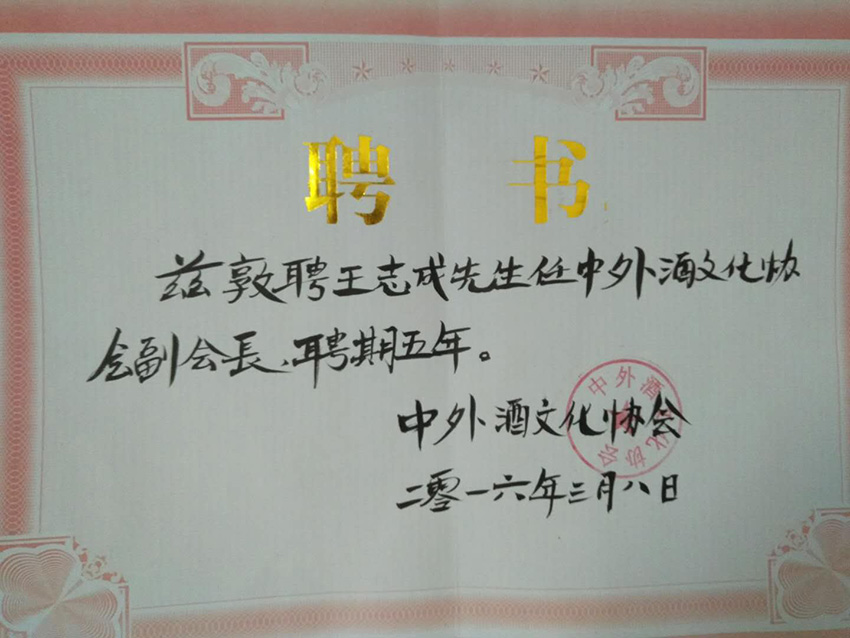 聘书
兹敦聘王志成先生任中外酒文化协
会副会長、聘期五年。
中外酒文化协会
二零一六年三月八日
中外酒文化协会